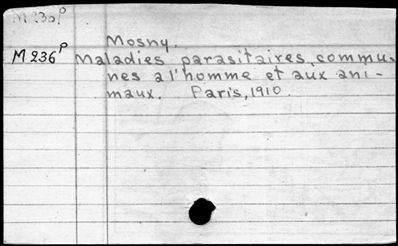 M 236P
Mosny.
M 236P Maladies parasitaires, commu-
nes a l'homme et aux ani-
maux. Paris, 1910.